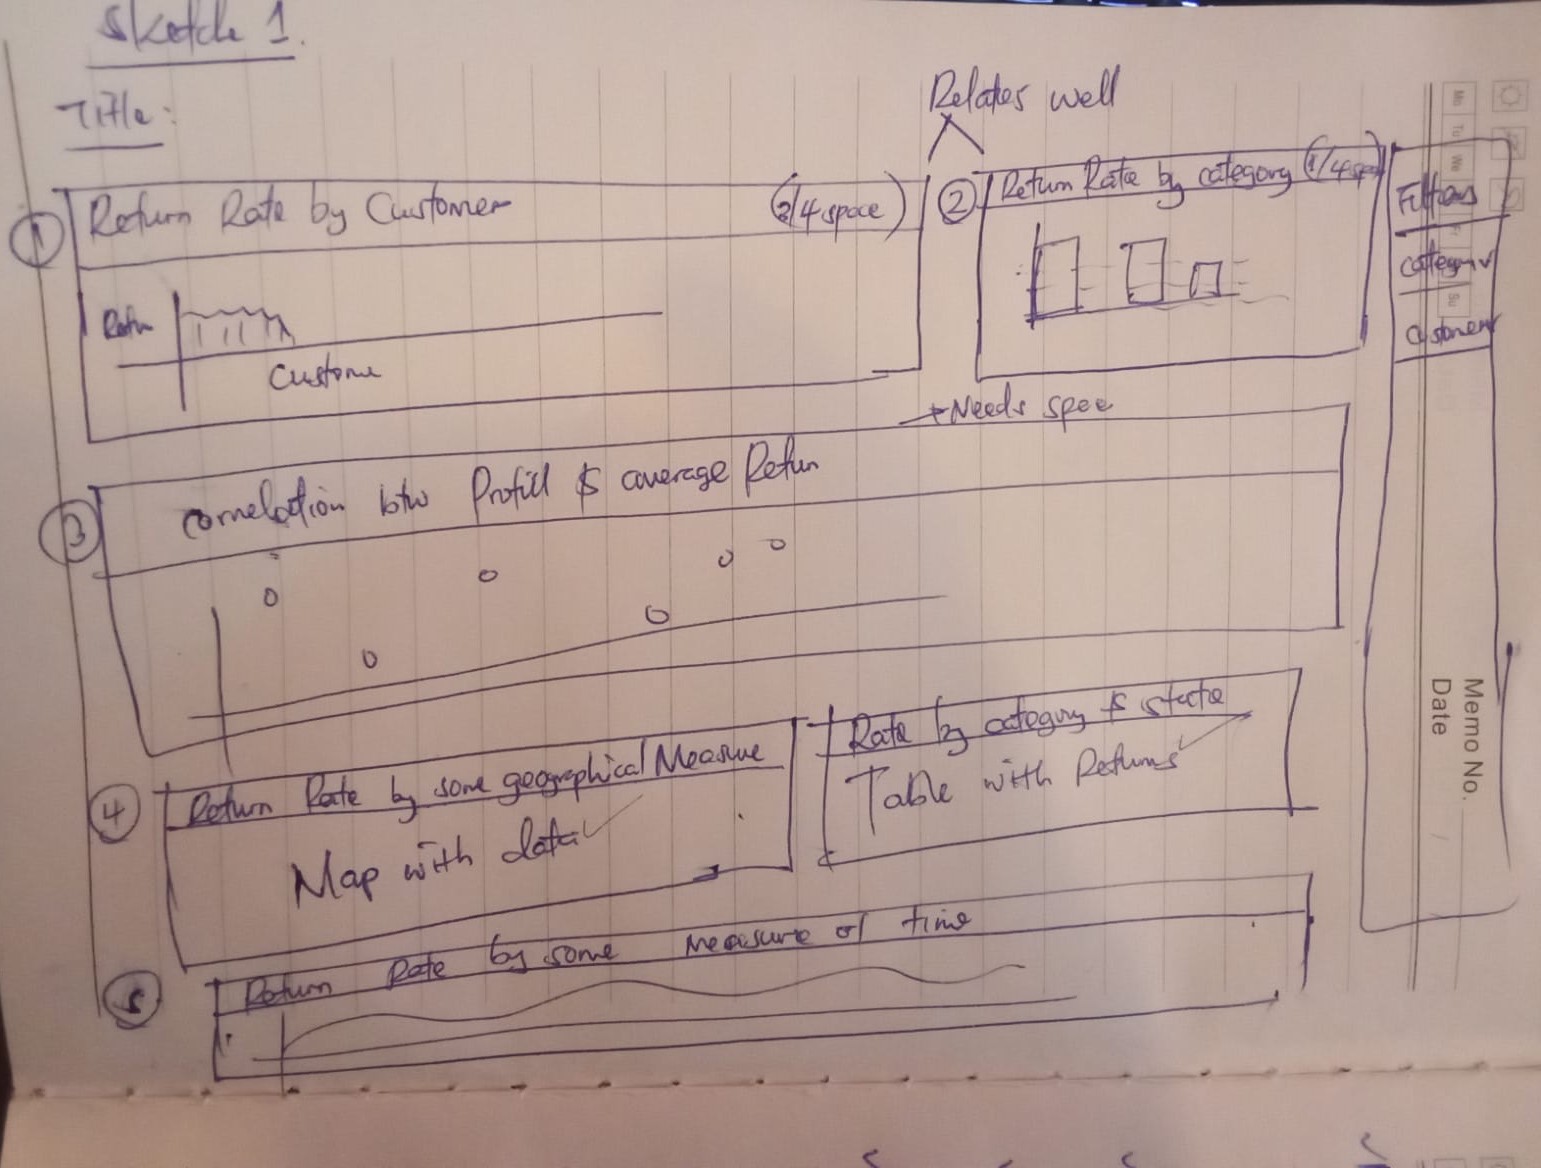 Sketch 1.
Title:
Relates well
1 Return Rate by Customer (3/4 space)
2 Return Rate by category (1/4 space)
Filters
Category
Customer
Retn
Custome
→ Needs spee
3 Correlation btw Profit & average Retun
4 Return Rate by some geographical Measure
Map with data
Rate by category & state
Table with Returns
5 Return Rate by some measure of time
Memo No.
Date
Mo
Tu
We
Su